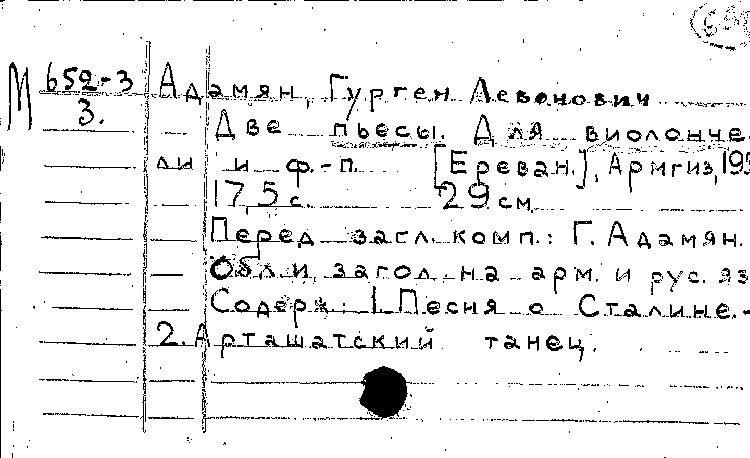 М 652-3 Адамян, Гурген Левонович
3. Две пьесы. Для виолонче-
ли и ф.-п. [Ереван], Армгиз,
17,5 с. 29 см.
Перед загл. комп.: Г. Адамян.
Обл. и загол. на арм. и рус. яз
Содерж.: 1. Песня о Сталине.-
2. Арташатский танец.